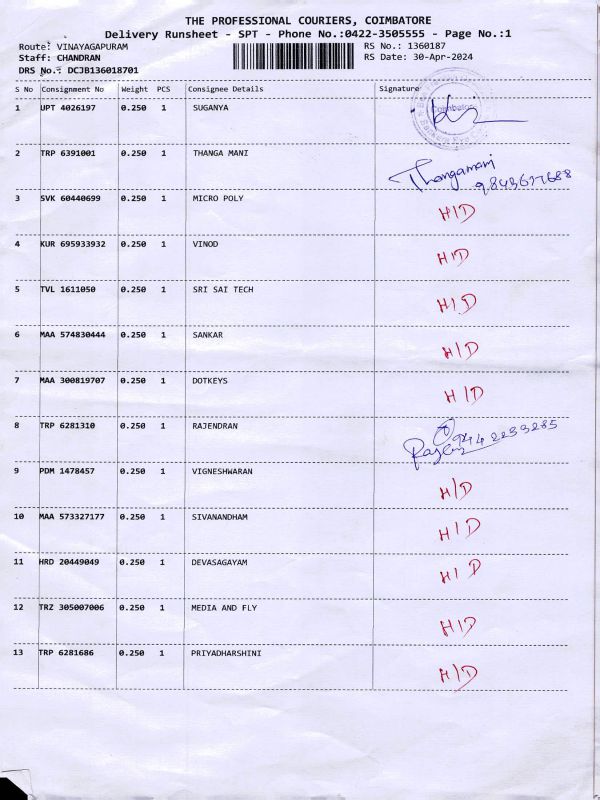 THE PROFESSIONAL COURIERS, COIMBATORE
Delivery Runsheet - SPT - Phone No.:0422-3505555 - Page No.:1
Route: VINAYAGAPURAM RS No.: 1360187
Staff: CHANDRAN RS Date: 30-Apr-2024
DRS No.: DCJB136018701
S No Consignment No Weight PCS Consignee Details Signature
1 UPT 4026197 0.250 1 SUGANYA
Coimbatore
2 TRP 6391001 0.250 1 THANGA MANI Thangamani
9843677688
3 SVK 60440699 0.250 1 MICRO POLY H/D
4 KUR 695933932 0.250 1 VINOD H/D
5 TVL 1611050 0.250 1 SRI SAI TECH H/D
6 MAA 574830444 0.250 1 SANKAR H/D
7 MAA 300819707 0.250 1 DOTKEYS H/D
8 TRP 6281310 0.250 1 RAJENDRAN 9442233285
9 PDM 1478457 0.250 1 VIGNESHWARAN H/D
10 MAA 573327177 0.250 1 SIVANANDHAM H/D
11 HRD 20449049 0.250 1 DEVASAGAYAM H/D
12 TRZ 305007006 0.250 1 MEDIA AND FLY H/D
13 TRP 6281686 0.250 1 PRIYADHARSHINI H/D